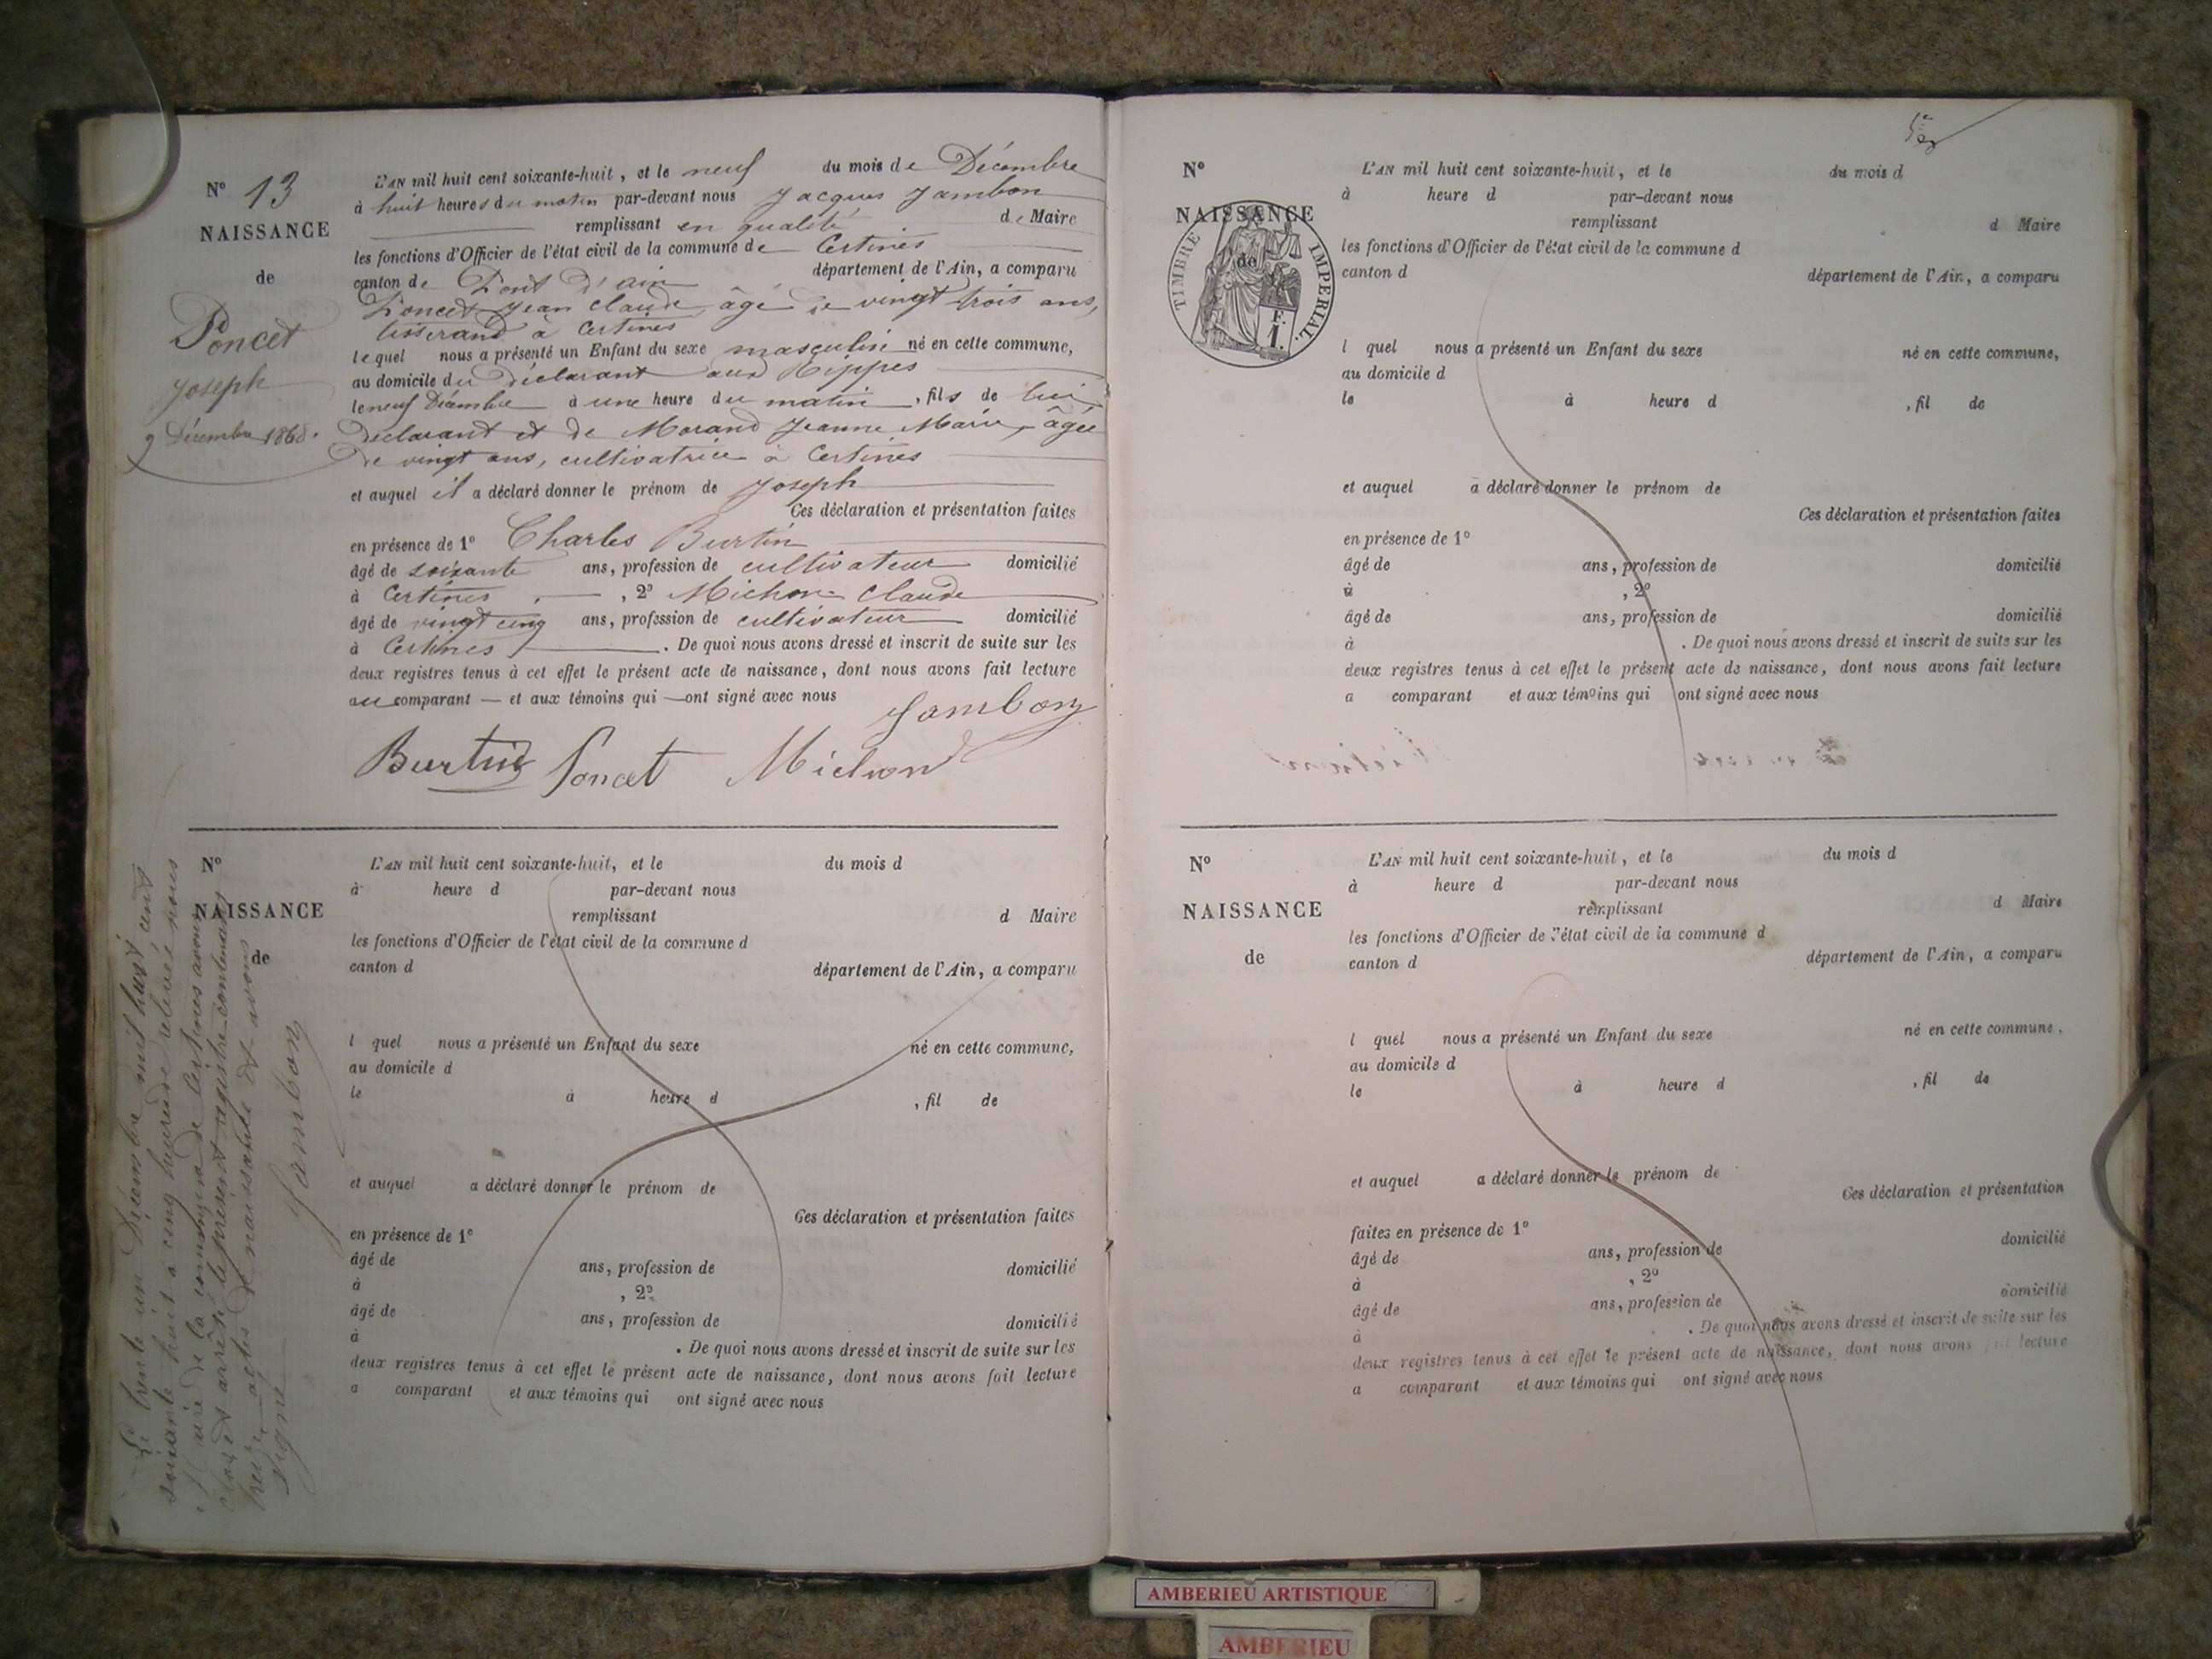 N° 13
NAISSANCE
de
Poncet
Joseph
9 Décembre 1868.
L'AN mil huit cent soixante-huit, et le neuf du mois de Décembre
à huit heures du matin par-devant nous Jacques Jambon
remplissant en qualité de Maire
les fonctions d'Officier de l'état civil de la commune de Certines
canton de Pont d'ain département de l'Ain, a comparu
Poncet Jean Claude, âgé de vingt trois ans,
tisserand à Certines
lequel nous a présenté un Enfant du sexe masculin né en cette commune,
au domicile du déclarant aux Rippes
le neuf Décembre à une heure du matin, fils de lui
déclarant et de Morand Jeanne Marie, âgée
de vingt ans, cultivatrice à Certines
et auquel il a déclaré donner le prénom de Joseph
Ces déclaration et présentation faites
en présence de 1° Charles Burtin
âgé de soixante ans, profession de cultivateur domicilié
à Certines, 2° Michon Claude
âgé de vingt cinq ans, profession de cultivateur domicilié
à Certines. De quoi nous avons dressé et inscrit de suite sur les
deux registres tenus à cet effet le présent acte de naissance, dont nous avons fait lecture
au comparant — et aux témoins qui — ont signé avec nous
Jambon
Burtin Poncet Michon
N°
NAISSANCE
de
L'AN mil huit cent soixante-huit, et le du mois d
à heure d par-devant nous
remplissant d Maire
les fonctions d'Officier de l'état civil de la commune d
canton d département de l'Ain, a comparu
l quel nous a présenté un Enfant du sexe né en cette commune,
au domicile d
le à heure d , fil de
et auquel a déclaré donner le prénom de
Ces déclaration et présentation faites
en présence de 1°
âgé de ans, profession de domicilié
à , 2°
âgé de ans, profession de domicilié
à . De quoi nous avons dressé et inscrit de suite sur les
deux registres tenus à cet effet le présent acte de naissance, dont nous avons fait lecture
a comparant et aux témoins qui ont signé avec nous
Le trente un Décembre mil huit cent
soixante huit à cinq heures de relevé nous
Maire de la commune de Certines avons
clos et arrêté le présent registre contenant
treize actes de naissance et avons
signé
Jambon
N°
NAISSANCE
de
TIMBRE IMPERIAL.
F.
1.
L'AN mil huit cent soixante-huit, et le du mois d
à heure d par-devant nous
remplissant d Maire
les fonctions d'Officier de l'état civil de la commune d
canton d département de l'Ain, a comparu
l quel nous a présenté un Enfant du sexe né en cette commune,
au domicile d
le à heure d , fil de
et auquel a déclaré donner le prénom de
Ces déclaration et présentation faites
en présence de 1°
âgé de ans, profession de domicilié
à , 2°
âgé de ans, profession de domicilié
à . De quoi nous avons dressé et inscrit de suite sur les
deux registres tenus à cet effet le présent acte de naissance, dont nous avons fait lecture
a comparant et aux témoins qui ont signé avec nous
N°
NAISSANCE
de
L'AN mil huit cent soixante-huit, et le du mois d
à heure d par-devant nous
remplissant d Maire
les fonctions d'Officier de l'état civil de la commune d
canton d département de l'Ain, a comparu
l quel nous a présenté un Enfant du sexe né en cette commune,
au domicile d
le à heure d , fil de
et auquel a déclaré donner le prénom de
Ces déclaration et présentation
faites en présence de 1° domicilié
âgé de ans, profession de
à , 2° domicilié
âgé de ans, profession de
à . De quoi nous avons dressé et inscrit de suite sur les
deux registres tenus à cet effet le présent acte de naissance, dont nous avons fait lecture
a comparant et aux témoins qui ont signé avec nous
AMBERIEU ARTISTIQUE
AMBERIEU